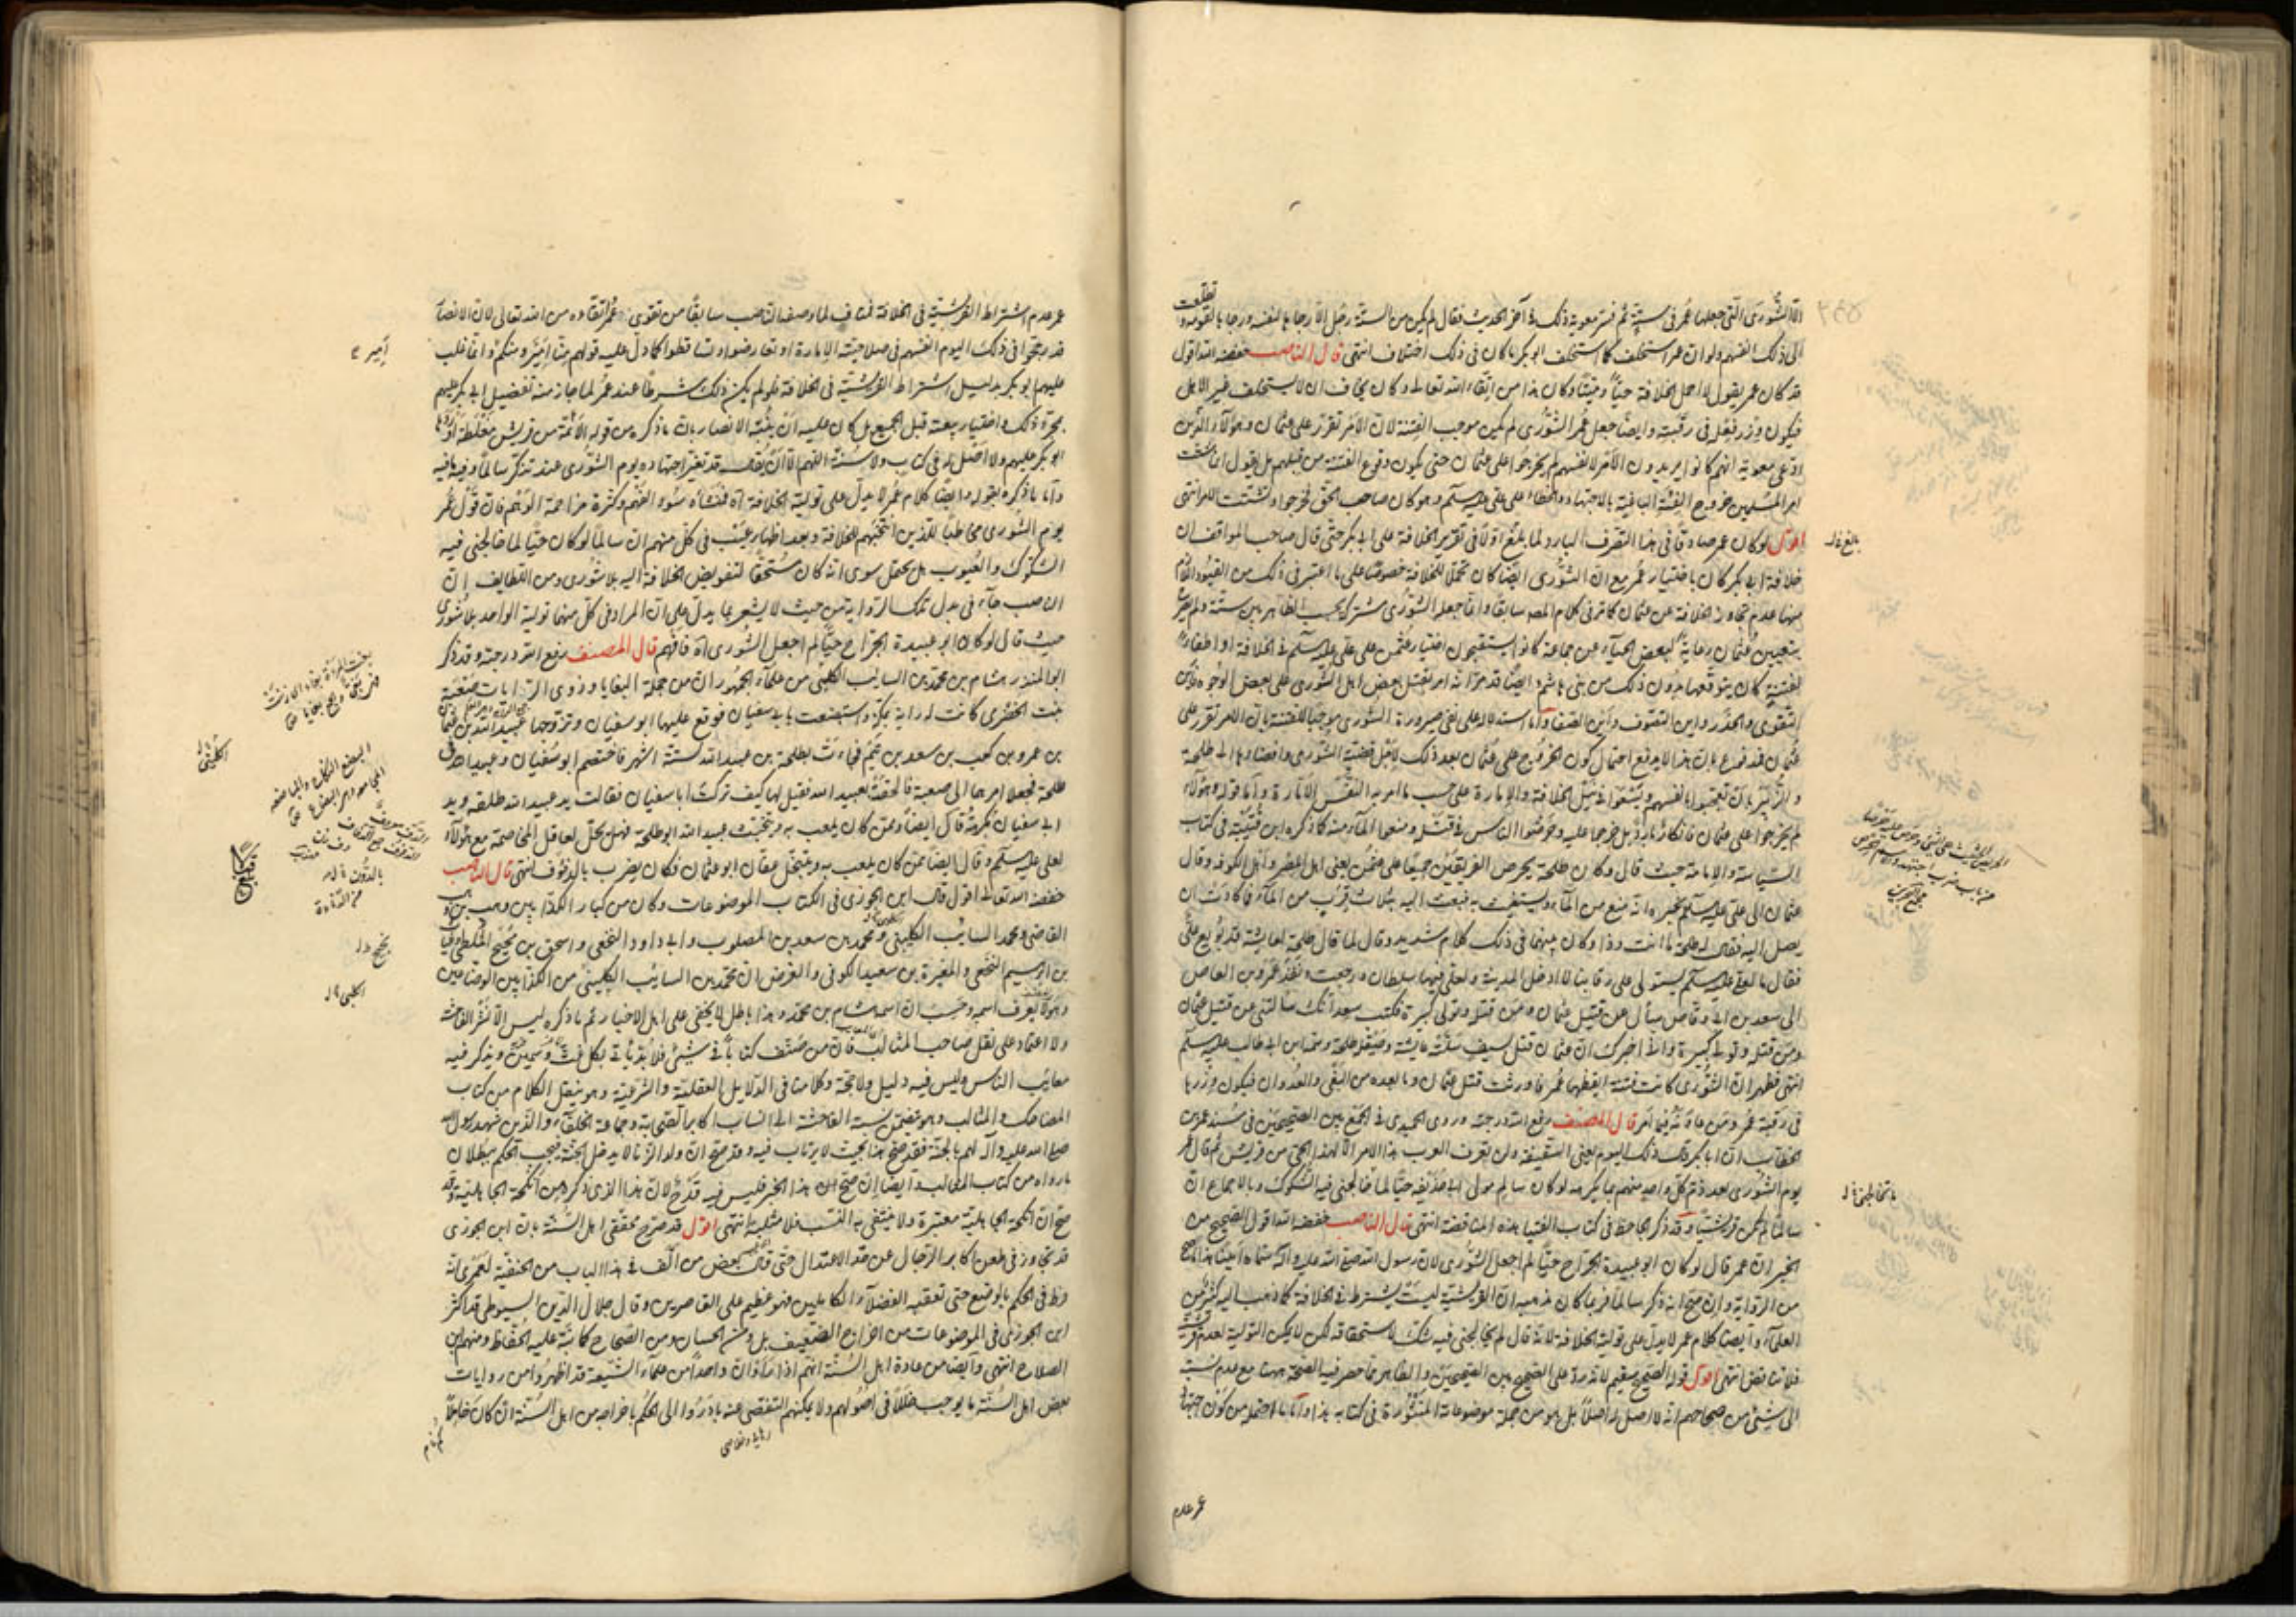 الا الشورى التي جعلها عمر في ستة ثم فسر معوية ذلك في آخر الحديث فقال لم يكن من الستة رجل الا رجاها لنفسه ورجاها لقومه و تطلعت
الى ذلك انفسهم ولو ان عمر استخلف كما استخلف ابو بكر ما كان في ذلك اختلاف انتهى قال الناصب خفضه الله اقول
قد كان عمر يقول لا احمل الخلافة حيا وميتا وكان هذا من اتقاء الله تعالى وكان يخاف ان لا يستخلف غير الاهل
فيكون وزر فعل في رقبته وايضا جعل عمر الشورى لم يكن موجب الفتنة لان الامر تقرر على عثمان وهؤلاء الذين
ادعى معوية انهم كانوا يريدون الامر لانفسهم لم يخرجوا على عثمان حتى يكون وقوع الفتنة من قبلهم بل يقول انما شتت
امر المسلمين خروج الفئة الباغية بالاجتهاد والخطاء على علي عليه سلم وهو كان صاحب الحق فخرجوا وتشتت الامر انتهى
اقول لو كان عمر صادقا في هذا التصرف البارد لما بلغ اولا في تقرير الخلافة على ابي بكر حتى قال صاحب المواقف ان
خلافة ابي بكر كان باختيار عمر مع ان الشورى ايضا كان تحملا للخلافة خصوصا على ما اعتبر في ذلك من القيود الام
منها عدم تجاوز الخلافة عن عثمان كما مر في كلام المصه سابقا وانما جعل الشورى مشتركا بحسب الظاهر بين ستة ولم يصرح
بتعيين عثمان رعاية لبعض الحياء عن جماعة كانوا يستقبحون اختيار عثمن على علي عليه سلم في الخلافة او اطفاء
لفتنة كان يتوقعها بدون ذلك من بني هاشم وايضا قد مر انه امر بقتل بعض اهل الشورى على بعض الوجوه فاين
التقوى والحذر واين التعفف واين الصفا واما استدلاله على نفي صيرورة الشورى موجبا للفتنة بان الامر تقرر على
عثمان فمدفوع بان هذا لا يدفع احتمال كون الخروج على عثمان بعد ذلك لاجل قضية الشورى وافضاؤها الى طلحة
والزبير بان تعجبوا بانفسهم ويسعوا في نيل الخلافة والامارة على حسب ما امر به النفس الامارة واما قوله وهؤلاء
لم يخرجوا على عثمان فانكار بارد بل خرجا عليه وحرضوا الناس في قتله ومنعوا الماء منه كما ذكره ابن قتيبة في كتاب
السياسة والامامة حيث قال وكان طلحة يحرض الفريقين جميعا على عثمن يعني اهل مصر واهل الكوفة وقال
عثمان الى علي عليه سلم يخبره انه منع من الماء ويستغيث به فبعث اليه بثلاث قرب من الماء فما كادت ان
يصل اليه فقال له طلحة ما انت وذا وكان بينهما في ذلك كلام شديد وقال لما قال طلحة لعايشة قد بويع علي
فقال ما لعلي عليه سلم يستولي على رقابنا لا ادخل المدينة ولعلي فيها سلطان ورجعت ونفذ عمرو بن العاص
الى سعد بن ابي وقاص يسأل عن قتل عثمان ومن قتله وتولى كبيرة فكتب سعد انك سالتني عن قتل عثمان
ومن قتله وتولى كبيرة واني اخبرك ان عثمان قتل بسيف سلته عايشة وصيقله طلحة وسمه ابن ابي طالب عليه سلم
انتهى فظهر ان الشورى كانت فتنة ايقظها عمر فاورثت قتل عثمان وما بعده من البغي والعدوان فيكون وزرها
في رقبة عمر ومن عاونه فيما امر قال المصنف رفع الله درجته وروى الحميدي في الجمع بين الصحيحين في مسند عمر بن
الخطاب ان ابا بكر قال ذلك اليوم يعني السقيفة ولن يعرف العرب هذا الامر الا لهذا الحي من قريش ثم قال عمر
يوم الشورى بعد ذم كل واحد منهم بما يكرهه لو كان سالم مولى ابي حذيفة حيا لما خالجني فيه الشكوك وبالاجماع ان
سالما لم يكن قرشيا وقد ذكر الجاحظ في كتاب الفتيا هذه المناقضة انتهى قال الناصب خفضه الله اقول الصحيح من
الخبر ان عمر قال لو كان ابو عبيدة الجراح حيا لم اجعل الشورى لان رسول الله صلى الله عليه وآله سماه امينا هذا اصح
من الرواية وان صح انه ذكر سالما فربما كان مذهبه ان القرشية ليست يشترط في الخلافة كما ذهب اليه كثير من
العلماء وايضا كلام عمر لا يدل على تولية الخلافة لانه قال لم يخالجني فيه شك لاستحقاقه لكن لا يمكن التولية لعدم قرشيته
فلا تناقض انتهى اقول قوله الصحيح سقيم لانه رد على الصحيح من الصحيحين والظاهر مما حصر فيه الصحة ههنا مع عدم نسبته
الى شيء من صحاحهم انه لا اصل له اصلا بل هو من جملة موضوعاته المنثورة في كتابه هذا واما ما احتمله من كون مذهب
عمر عدم
بالغ خ ل
مجمع البحرين
ما تخالجني خ ل
عمر عدم اشتراط القرشية في الخلافة فمناف لما وصفه الناصب سابقا من تقوى عمر واتقاه من الله تعالى لان الانصار
قد رجوا في ذلك اليوم انفسهم في صلاحية الامارة او تعارضوا وتساقطوا كما دل عليه قولهم منا امير ومنكم وانما غلب
عليهم ابو بكر بدليل اشتراط القرشية في الخلافة فلو لم يكن ذلك شرطا عند عمر لما جاز منه تفضيل ابي بكر عليهم
بمجرد ذلك واختيار بيعته قبل الجميع بل كان عليه ان ينبه الانصار بان ما ذكره من قوله الائمة من قريش مغلطة اوردها
ابو بكر عليهم ولا اصل له في كتاب ولا سنة اللهم الا ان يقال قد تغير اجتهاده يوم الشورى عند تذكر سالما وفيه ما فيه
واما ما ذكره بقوله وايضا كلام عمر لا يدل على تولية الخلافة آه فمنشأه سوء الفهم وكثرة مزاحمة الوهم فان قول عمر
يوم الشورى مخاطبا للذين انتخبهم للخلافة وبعد اظهار عيب في كل منهم ان سالما لو كان حيا لما خالجني فيه
الشكوك والعيوب بل يحتمل سوى انه كان مستحقا لتفويض الخلافة اليه بلا شورى ومن اللطايف ان
الناصب جاء في بدل تلك الرواية من حيث لا يشعر بما يدل على ان المراد في كل منهما تولية الواحد بلا شورى
حيث قال لو كان ابو عبيدة الجراح حيا لم اجعل الشورى آه فافهم قال المصنف رفع الله درجته وقد ذكر
ابو المنذر هشام بن محمد بن السايب الكلبي من علماء الجمهور ان من جملة البغايا وذوي الرايات صعبة
بنت الحضرمي كانت لها راية بمكة واستبضعت بابي سفيان فوقع عليها ابو سفيان وتزوجها عبيد الله بن عثمان
بن عمرو بن كعب بن سعد بن تيم فجاءت بطلحة بن عبيد الله لستة اشهر فاختصم ابو سفيان وعبيد الله في
طلحة فجعلا امرهما الى صعبة فالحقته بعبيد الله فقيل لها كيف تركت ابا سفيان فقالت يد عبيد الله طلقة ويد
ابي سفيان نكرة وقال ايضا وممن كان يلعب به ويتخنث عبيد الله ابو طلحة فهل يحل لعاقل المخاصمة مع هؤلاء
لعلي عليه سلم وقال ايضا ممن كان يلعب به ويتخنث عفان ابو عثمان فكان يضرب بالدفوف انتهى قال الناصب
خفضه الله تعالى اقول قال ابن الجوزي في الكتاب الموضوعات وكان من كبار الكذابين وهب بن وهب
القاضي ومحمد السايب الكلبي ومحمد بن سعد بن المصلوب وابي داود النخعي واسحق بن نجيح الملطي وغياث
بن ابراهيم النخعي والمغيرة بن سعيد الكوفي والغرض ان محمد بن السايب الكليني من الكذابين الوضاعين
وهو لا يعرف اسمه وحسب ان اسمه هشام بن محمد وهذا باطل لا يخفى على اهل الاخبار ثم ما ذكره ليس الا نشر الفاحشة
ولا اعتماد على نقل صاحب المثالب فان من صنف كتابا في شيء فلا بد يأتي بكل غث وسمين ويذكر فيه
معايب الناس وليس فيه دليل ولا حجة وكلامنا في الدلايل العقلية والشرعية وهو ينقل الكلام من كتاب
المضاحك والمثالب وهو يتضمن نسبة الفاحشة الى انساب اكابر الصحابة وجماعة الخلفاء والذين شهد رسول الله
صلى الله عليه وآله لهم بالجنة فقد صح هذا بحيث لا يرتاب فيه وقد صح ان ولد الزنا لا يدخل الجنة فيجب الحكم ببطلان
ما رواه من كتاب المثالب وايضا ان صح هذا الخبر فليس فيه قدح لان هذا الذي ذكره من انكحة الجاهلية وقد
صح ان انكحة الجاهلية معتبرة ولا ينتفي به النسب فلا مثلبة انتهى اقول قد صرح محققي اهل السنة بان ابن الجوزي
قد تجاوز في طعن اكابر الرجال عن حد الاعتدال حتى قال بعض من الف في هذا الباب من الحنفية لعمري انه
فرط في الحكم بالوضع حتى تعقبه الفضلاء الكاملين فهو عظيم على القاصرين وقال جلال الدين السيوطي قد اكثر
ابن الجوزي في الموضوعات من اخراج الضعيف بل ومن الحسان ومن الصحاح كما نبه عليه الحفاظ ومنهم ابن
الصلاح انتهى وايضا من عادة اهل السنة انهم اذا رأوا ان واحدا من علماء الشيعة قد اظهروا من روايات
بعض اهل السنة ما يوجب خللا في اصولهم ولا يمكنهم التفصي عنه بادروا الى الحكم باخراجه من اهل السنة ان كان خاملا
امير ع
الكلبي خ ل
نجيح خ ل
الكلبي خ ل